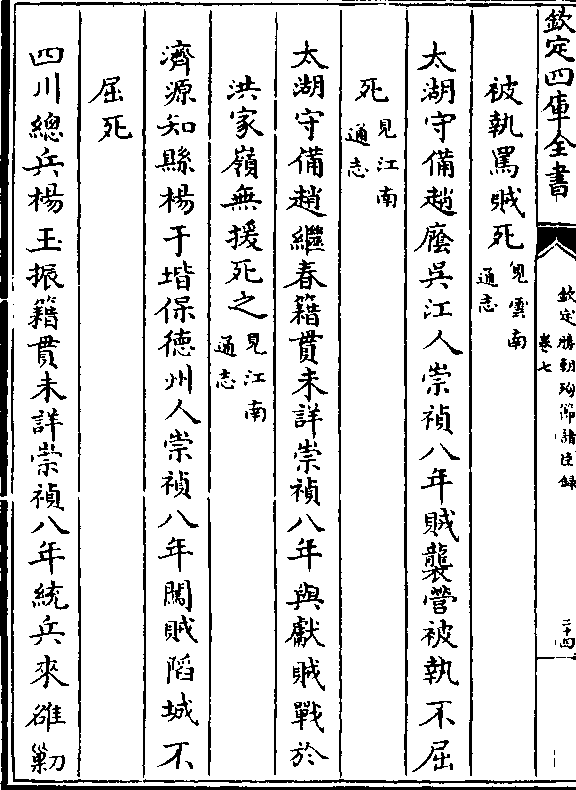 欽定四庫全書
欽定勝朝殉節諸臣錄
卷七
二十四
被執罵賊死見雲南通志
太湖守備趙應吳江人崇禎八年賊襲營被執不屈
死見江南通志
太湖守備趙繼春籍貫未詳崇禎八年與獻賊戰於
洪家嶺無援死之見江南通志
濟源知縣楊于堦保德州人崇禎八年闖賊陷城不
屈死
四川總兵楊玉振籍貫未詳崇禎八年統兵來雒剿